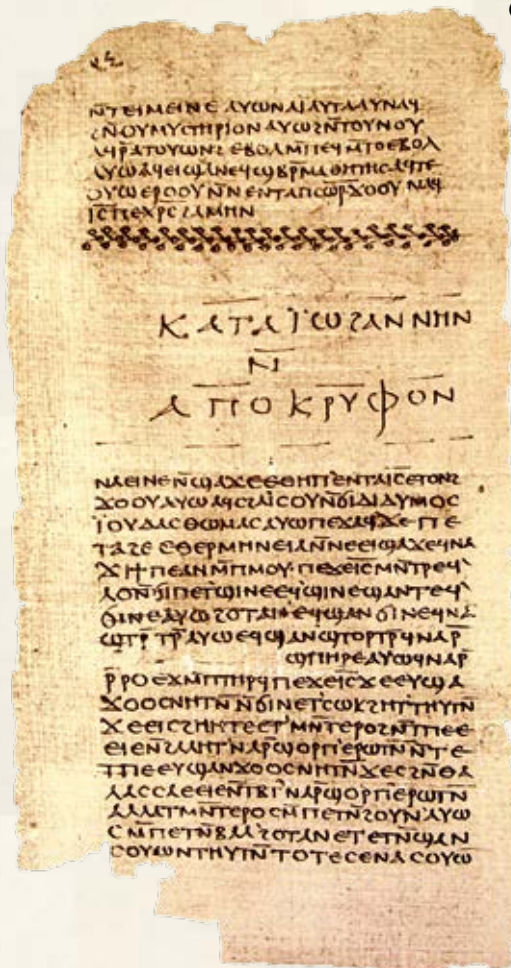 ⲛ̄ⲧⲉⲓⲙⲉⲓⲛⲉ ⲁⲩⲱ ⲛⲁⲓ ⲁⲩⲧⲁⲁⲩ ⲛⲁϥ
ϩⲛ̄ⲟⲩⲙⲩⲥⲧⲏⲣⲓⲟⲛ ⲁⲩⲱ ϩⲛ̄ⲧⲟⲩⲛⲟⲩ
ⲁϥⲣ̄ⲁⲧⲟⲩⲱⲛϩ ⲉⲃⲟⲗ ⲙ̄ⲡⲉϥⲙ̄ⲧⲟ ⲉⲃⲟⲗ
ⲁⲩⲱ ⲁϥⲉⲓ ϣⲁⲛⲉϥϣⲃⲣ̄ⲙⲁⲑⲏⲧⲏⲥ ⲁϥⲧⲉ
ⲟⲩⲱ ⲉⲣⲟⲟⲩ ⲛ̄ⲛⲉⲛⲧⲁⲡⲥⲱⲣ ϫⲟⲟⲩ ⲛⲁϥ
ⲓ̄ⲥ̄ ⲡⲉⲭⲣ̄ⲥ̄ ϩⲁⲙⲏⲛ
ⲕⲁⲧⲁ ⲓ̈ⲱϩⲁⲛⲛⲏⲛ
ⲛ̄
ⲁⲡⲟⲕⲣⲩⲫⲟⲛ
ⲛⲁⲉⲓ ⲛⲉ ⲛ̄ϣⲁϫⲉ ⲉⲑⲏⲡ ⲉⲛⲧⲁⲓ̄ⲥ̄ ⲉⲧⲟⲛϩ
ϫⲟⲟⲩ ⲁⲩⲱ ⲁϥⲥϩⲁⲓⲥⲟⲩ ⲛ̄ϭⲓ ⲇⲓⲇⲩⲙⲟⲥ
ⲓ̈ⲟⲩⲇⲁⲥ ⲑⲱⲙⲁⲥ ⲁⲩⲱ ⲡⲉϫⲁϥ ϫⲉ ⲡⲉ
ⲧⲁϩⲉ ⲉⲑⲉⲣⲙⲏⲛⲉⲓⲁ ⲛ̄ⲛⲉⲉⲓϣⲁϫⲉ ϥⲛⲁ
ϫⲓ ϯⲡⲉ ⲁⲛ ⲙ̄ⲡⲙⲟⲩ ⲡⲉϫⲉ ⲓ̄ⲥ̄ ⲙⲛ̄ⲧⲣⲉϥ
ⲗⲟ ⲛ̄ϭⲓ ⲡⲉⲧϣⲓⲛⲉ ⲉϥϣⲓⲛⲉ ϣⲁⲛⲧⲉϥ
ϭⲓⲛⲉ ⲁⲩⲱ ϩⲟⲧⲁⲛ ⲉϥϣⲁⲛϭⲓⲛⲉ ϥⲛⲁ
ϣⲧⲣ̄ⲧⲣ̄ ⲁⲩⲱ ⲉϥϣⲁⲛϣⲧⲟⲣⲧⲣ̄ ϥⲛⲁⲣ̄
ϣⲡⲏⲣⲉ ⲁⲩⲱ ϥⲛⲁⲣ̄
ⲣ̄ⲣⲟ ⲉϫⲙ̄ⲡⲧⲏⲣϥ ⲡⲉϫⲉ ⲓ̄ⲥ̄ ϫⲉ ⲉⲩϣⲁ
ϫⲟⲟⲥ ⲛⲏⲧⲛ̄ ⲛ̄ϭⲓ ⲛⲉⲧⲥⲱⲕ ϩⲏⲧ ⲧⲏⲩⲧⲛ̄
ϫⲉ ⲉⲓⲥϩⲏⲏⲧⲉ ⲉⲧⲙⲛ̄ⲧⲉⲣⲟ ϩⲛ̄ⲧⲡⲉ ⲉ
ⲉⲓⲉ ⲛ̄ϩⲁⲗⲏⲧ ⲛⲁⲣ̄ϣⲟⲣⲡ ⲉⲣⲱⲧⲛ̄ ⲛ̄ⲧⲉ
ⲧⲡⲉ ⲉⲩϣⲁⲛϫⲟⲟⲥ ⲛⲏⲧⲛ̄ ϫⲉ ⲥϩⲛ̄ⲑⲁ
ⲗⲁⲥⲥⲁ ⲉⲉⲓⲉ ⲛ̄ⲧⲃⲧ ⲛⲁⲣ̄ϣⲟⲣⲡ ⲉⲣⲱⲧⲛ̄
ⲁⲗⲗⲁ ⲧⲙⲛ̄ⲧⲉⲣⲟ ⲥⲙ̄ⲡⲉⲧⲛ̄ϩⲟⲩⲛ ⲁⲩⲱ
ⲥⲙ̄ⲡⲉⲧⲛ̄ⲃⲁⲗ ϩⲟⲧⲁⲛ ⲉⲧⲉⲧⲛ̄ϣⲁⲛ
ⲥⲟⲩⲱⲛ ⲧⲏⲩⲧⲛ̄ ⲧⲟⲧⲉ ⲥⲉⲛⲁⲥⲟⲩⲱ